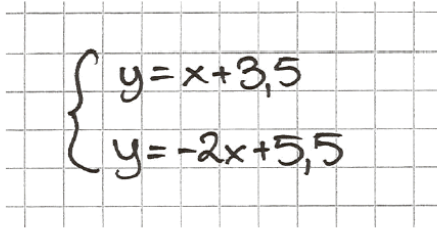 y=x+3,5
y=-2x+5,5